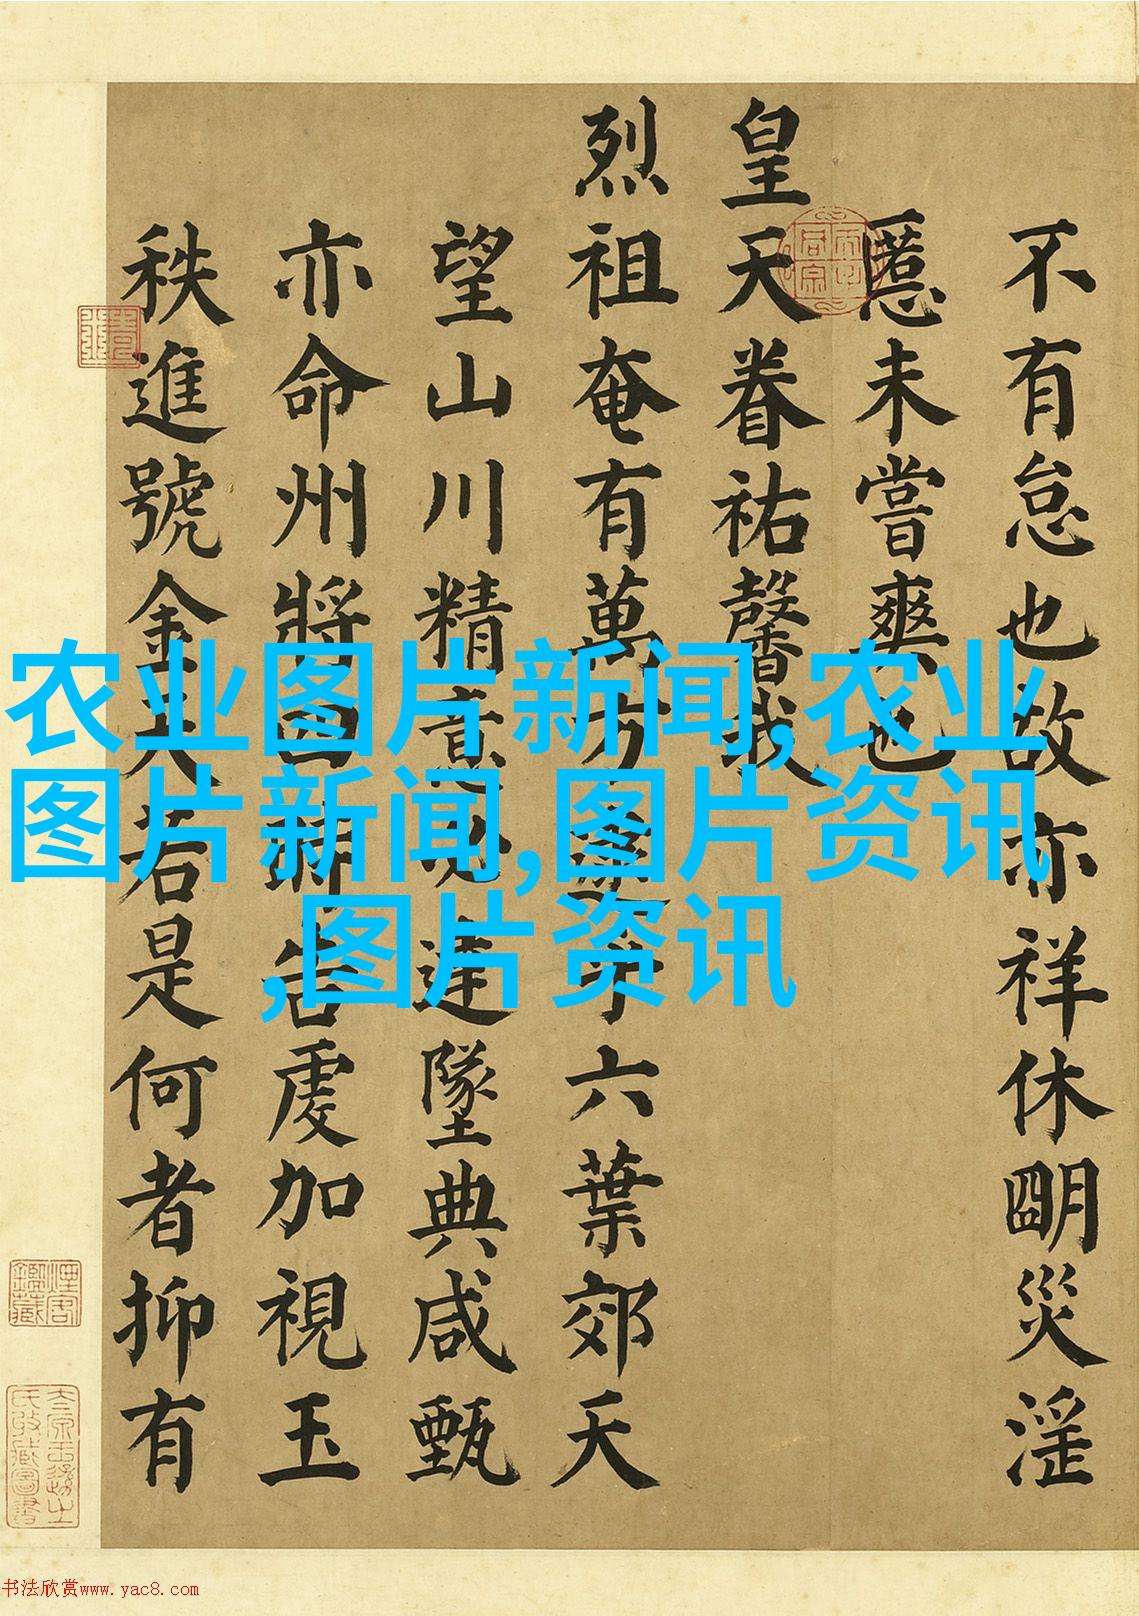 不有怠也故亦祥休明災淫
慝未嘗爽也
皇天眷祐馨我
烈祖奄有萬方六葉郊天
望山川精意達墜典咸甄
亦命州將告虔加視玉
秩進號金天若是何者抑有
农业图片新闻,农业
图片新闻,图片资讯
,图片资讯
書法欣赏www.yac8.com